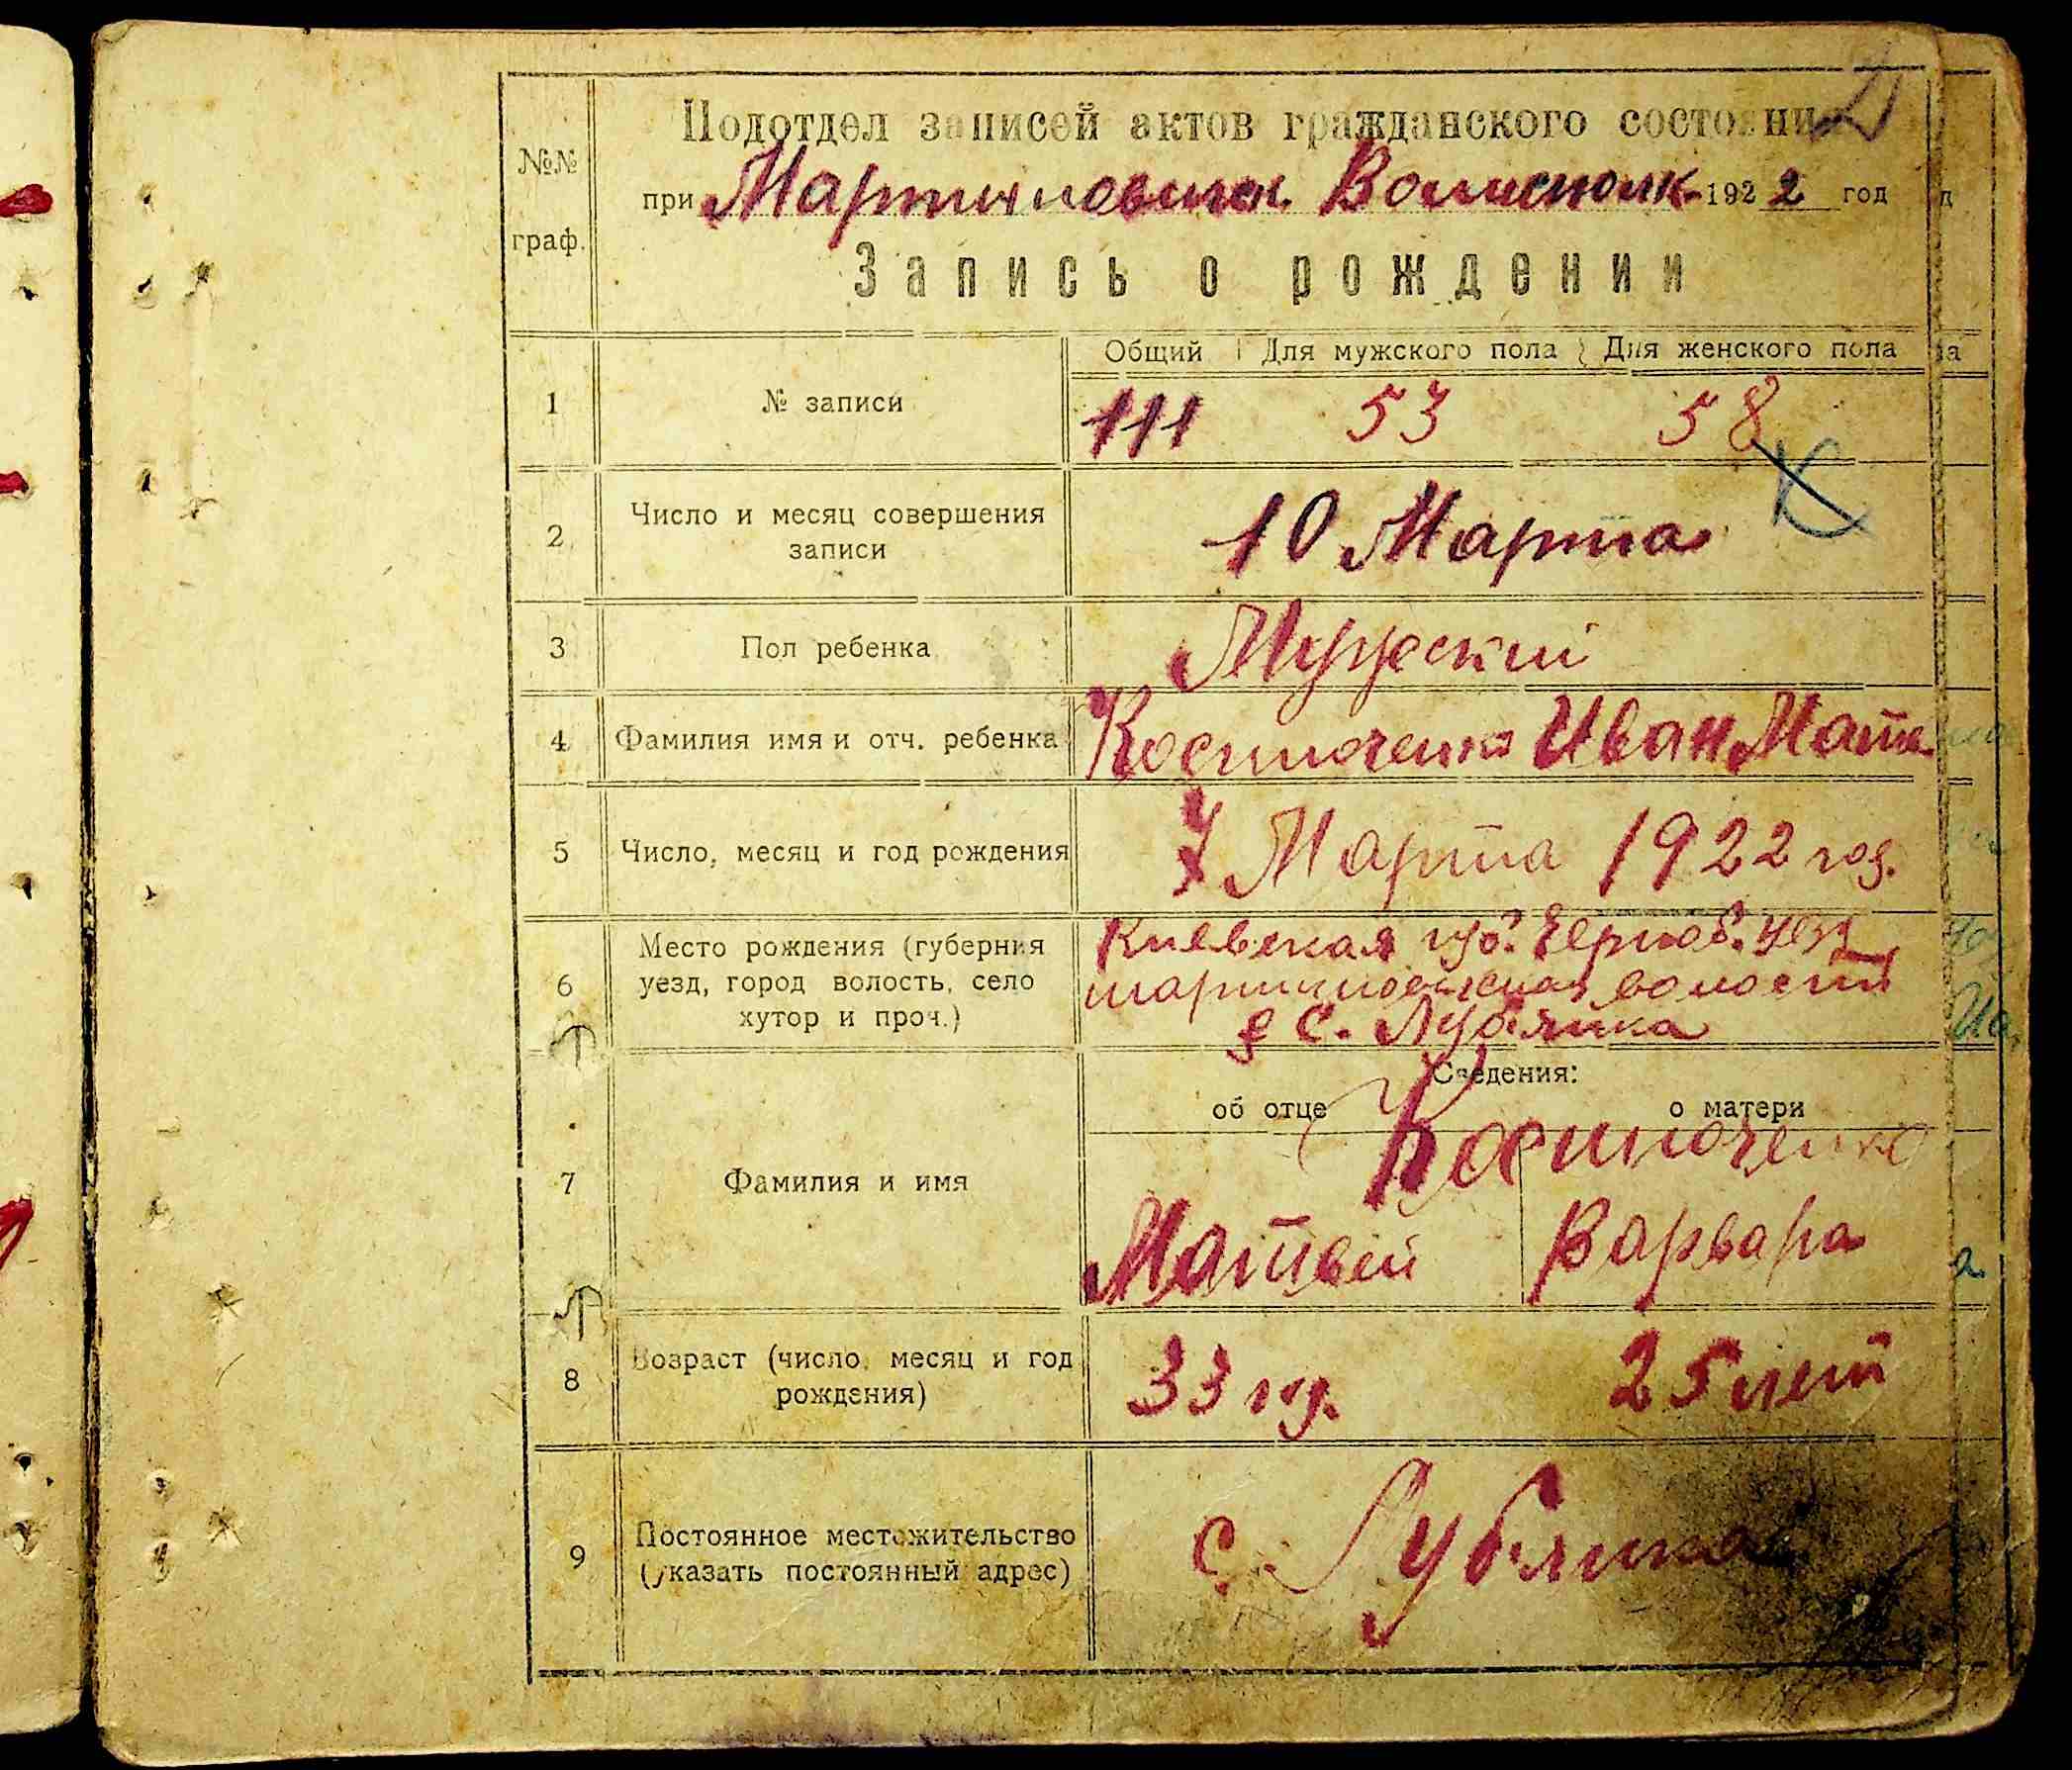 Подотдел записей актов гражданского состояни
при Мартыновичск. Волисполк. 1922 год
№№
граф.
Запись о рождении
Общий Для мужского пола Для женского пола
1 № записи 111 53 58
2 Число и месяц совершения
записи
10 Марта
3 Пол ребенка Мужский
4 Фамилия имя и отч. ребенка Костюченко Иван Матв.
5 Число, месяц и год рождения 7 Марта 1922 год.
6 Место рождения (губерния
уезд, город волость, село
хутор и проч.)
Киевская губ. Черноб. уезд
мартыновическая волость
с. Лубянка
Сведения:
об отце о матери
7 Фамилия и имя
Костюченко
Матвей Варвара
8 Возраст (число, месяц и год
рождения)
33 год. 25 лет
9 Постоянное местожительство
(указать постоянный адрес)
с. Лубянка